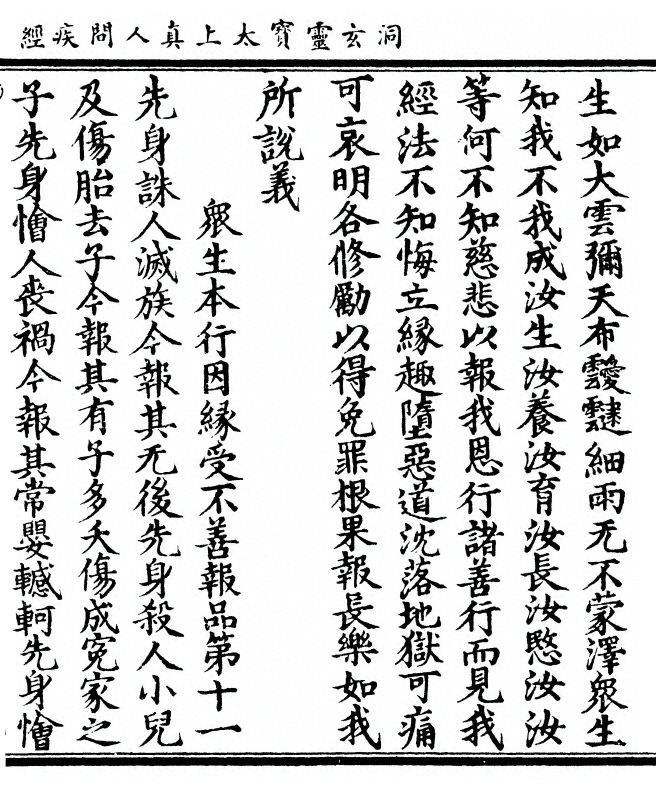 洞玄靈寶太上真人問疾經
生如大雲彌天布靉靆細雨无不蒙澤衆生
知我不我成汝生汝養汝育汝長汝愍汝汝
等何不知慈悲以報我恩行諸善行而見我
經法不知悔立緣趣墮惡道沈落地獄可痛
可哀明各修勵以得免罪根果報長樂如我
所說義
衆生本行因緣受不善報品第十一
先身誅人滅族今報其无後先身殺人小兒
及傷胎去子今報其有子多夭傷成冤家之
子先身憎人喪禍今報其常嬰轗軻先身憎